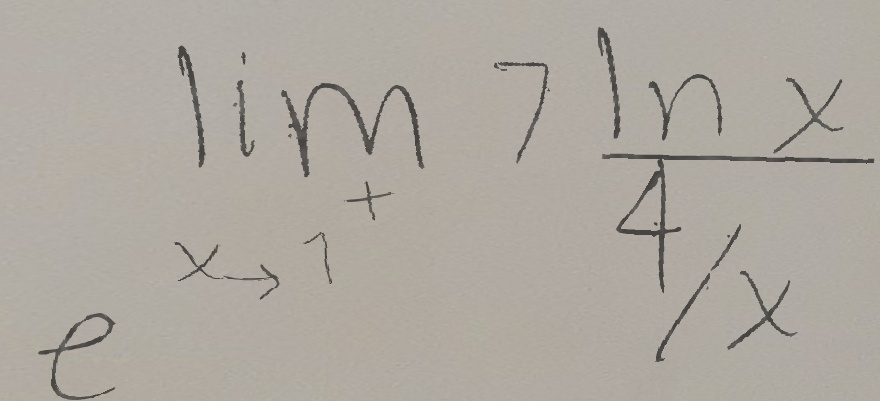 e^{\lim_{x \to 1^+} 7 \frac{\ln x}{4/x}}